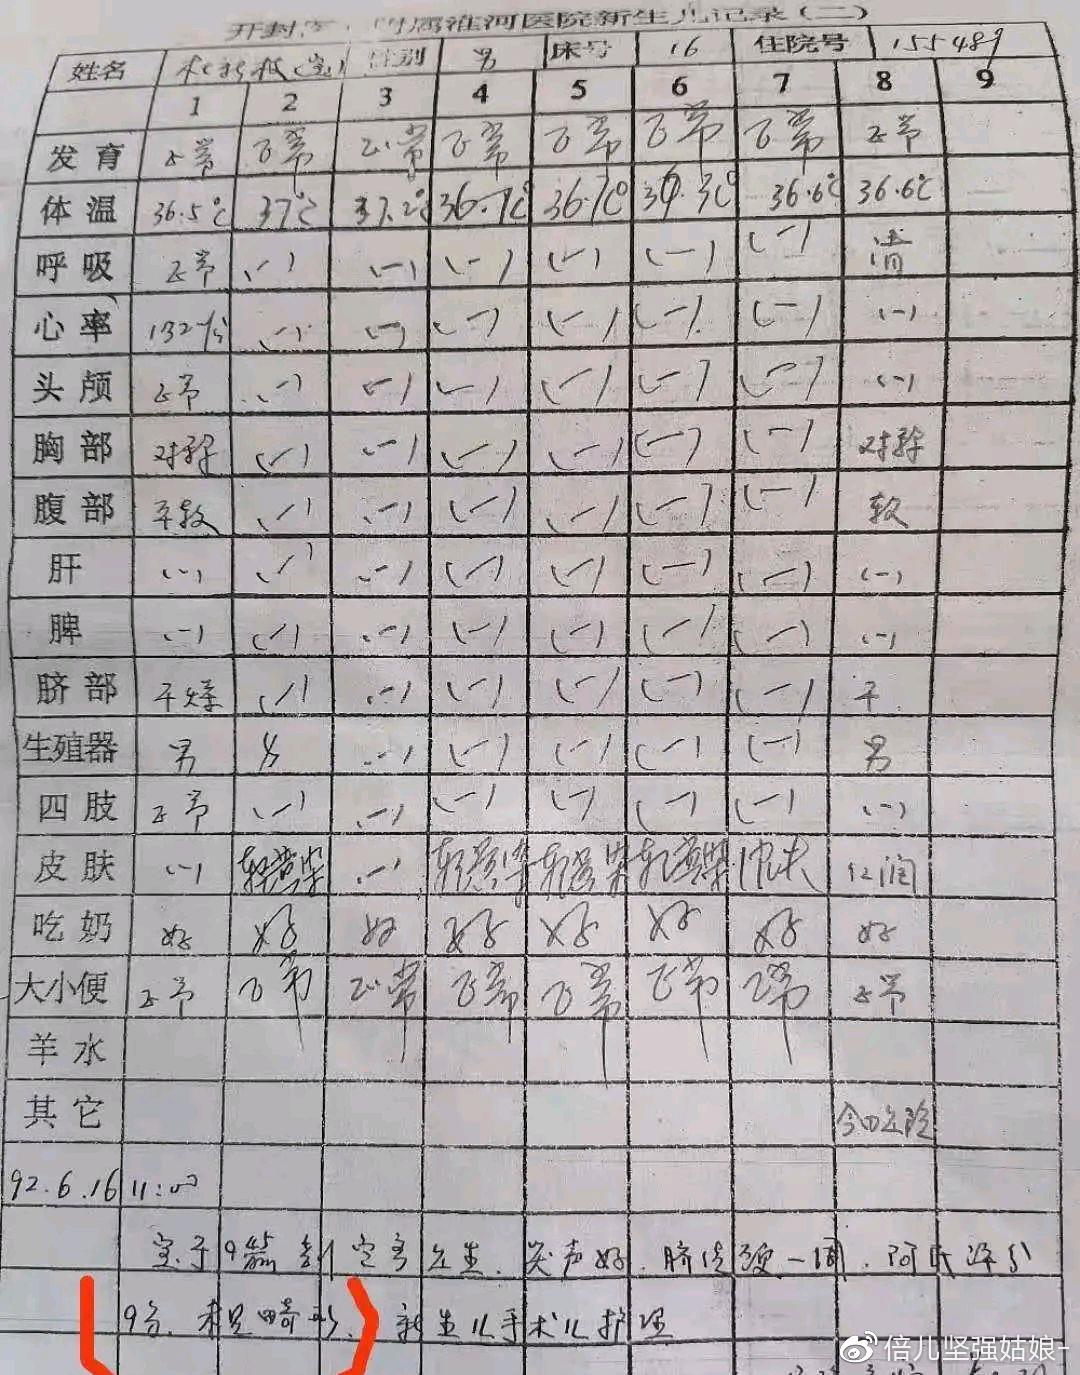 开封 附属淮河医院新生儿记录(二)
姓名 (宝) 性别 男 床号 16 住院号 155489
1 2 3 4 5 6 7 8 9
发育 正常 正常 正常 正常 正常 正常 正常 正常
体温 36.5℃ 37℃ 37.2℃ 36.7℃ 36.7℃ 36.3℃ 36.6℃ 36.6℃
呼吸 正常 (-) (-) (-) (-) (-) (-) 清
心率 132次/分 (-) (-) (-) (-) (-) (-) (-)
头颅 正常 (-) (-) (-) (-) (-) (-) (-)
胸部 对称 (-) (-) (-) (-) (-) (-) 对称
腹部 平软 (-) (-) (-) (-) (-) (-) 软
肝 (-) (-) (-) (-) (-) (-) (-) (-)
脾 (-) (-) (-) (-) (-) (-) (-) (-)
脐部 干燥 (-) (-) (-) (-) (-) (-) 干
生殖器 男 男 (-) (-) (-) (-) (-) 男
四肢 正常 (-) (-) (-) (-) (-) (-) (-)
皮肤 (-) 轻黄染 (-) 轻黄染 轻黄染 轻黄染 红润
吃奶 好 好 好 好 好 好 好 好
大小便 正常 正常 正常 正常 正常 正常 正常 正常
羊水
其它 今日出院
92.6.16 11:00
宝于9 剖宫产出生.哭声好.脐绕颈一周.阿氏评分
9分.未见畸形.新生儿手术儿护理
倍儿坚强姑娘-